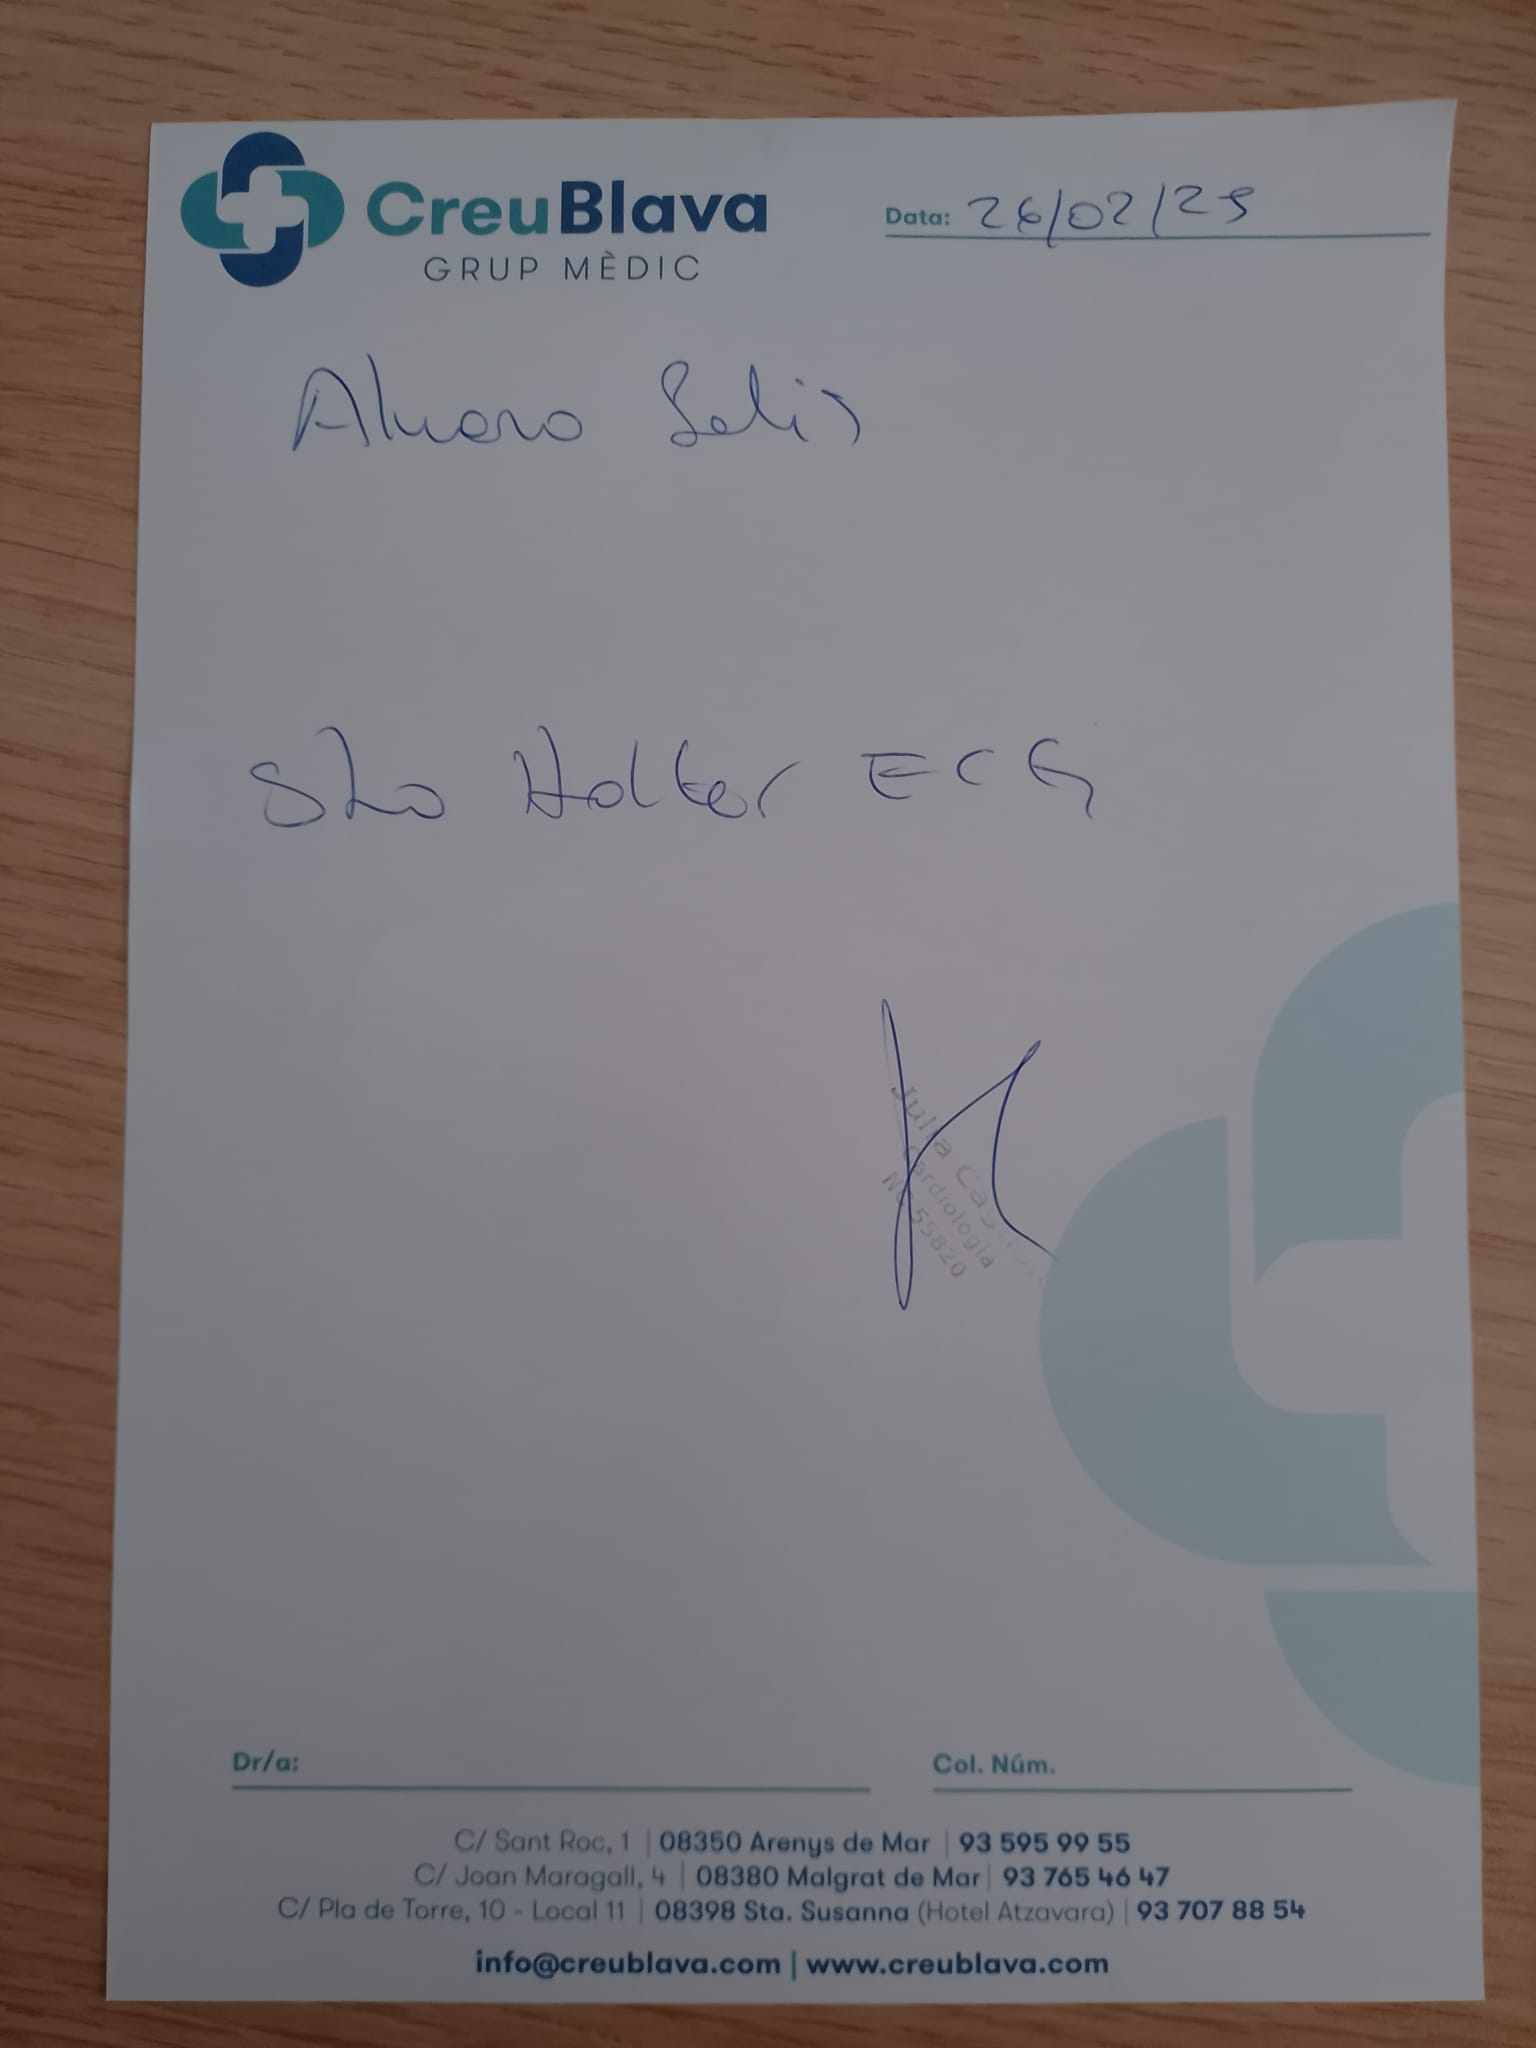 CreuBlava
GRUP MÈDIC
Data: 26/02/25
Alvaro Solis
Sto Holter ECG
Julia
Cardiología
Nº 55820
Dr/a:
Col. Núm.
C/ Sant Roc, 1 | 08350 Arenys de Mar | 93 595 99 55
C/ Joan Maragall, 4 | 08380 Malgrat de Mar | 93 765 46 47
C/ Pla de Torre, 10 - Local 11 | 08398 Sta. Susanna (Hotel Atzavara) | 93 707 88 54
info@creublava.com | www.creublava.com